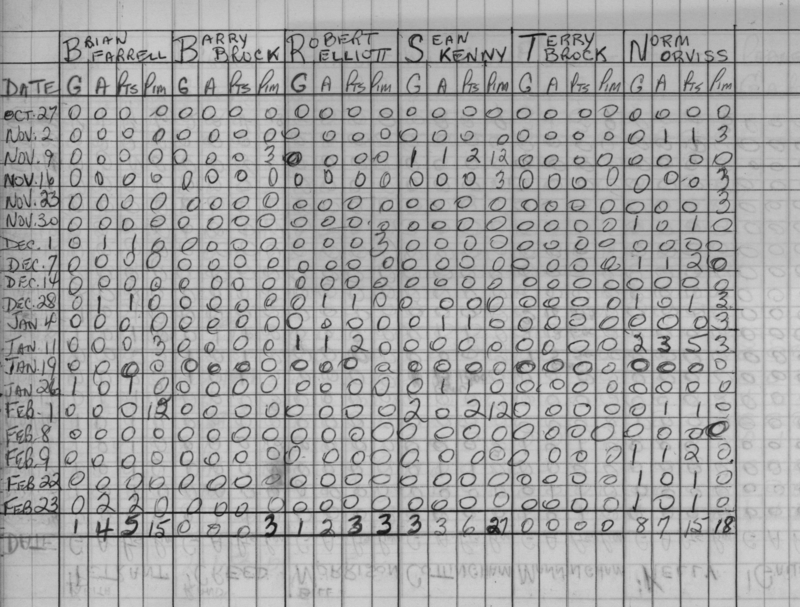 BRIAN FARRELL BARRY BROCK ROBERT ELLIOTT SEAN KENNY TERRY BROCK NORM ORVISS
DATE G A Pts Pim G A Pts Pim G A Pts Pim G A Pts Pim G A Pts Pim G A Pts Pim
OCT.27 0 0 0 0 0 0 0 0 0 0 0 0 0 0 0 0 0 0 0 0 0 0 0 0
NOV.2 0 0 0 0 0 0 0 0 0 0 0 0 0 0 0 0 0 0 0 0 0 1 1 3
NOV.9 0 0 0 0 0 0 0 3 0 0 0 0 1 1 2 12 0 0 0 0 0 0 0 0
NOV.16 0 0 0 0 0 0 0 0 0 0 0 0 0 0 0 3 0 0 0 0 0 0 0 3
NOV.23 0 0 0 0 0 0 0 0 0 0 0 0 0 0 0 0 0 0 0 0 0 0 0 3
NOV.30 0 0 0 0 0 0 0 0 0 0 0 0 0 0 0 0 0 0 0 0 1 0 1 0
DEC.1 0 1 1 0 0 0 0 0 0 0 0 3 0 0 0 0 0 0 0 0 0 0 0 0
DEC.7 0 0 0 0 0 0 0 0 0 0 0 0 0 0 0 0 0 0 0 0 1 1 2 0
DEC.14 0 0 0 0 0 0 0 0 0 0 0 0 0 0 0 0 0 0 0 0 0 0 0 0
DEC.28 0 1 1 0 0 0 0 0 0 1 1 0 0 0 0 0 0 0 0 0 1 0 1 3
JAN 4 0 0 0 0 0 0 0 0 0 0 0 0 0 1 1 0 0 0 0 0 0 0 0 3
JAN.11 0 0 0 3 0 0 0 0 1 1 2 0 0 0 0 0 0 0 0 0 2 3 5 3
JAN.19 0 0 0 0 0 0 0 0 0 0 0 0 0 0 0 0 0 0 0 0 0 0 0 0
JAN.26 1 0 1 0 0 0 0 0 0 0 0 0 0 1 1 0 0 0 0 0 0 0 0 0
FEB.1 0 0 0 12 0 0 0 0 0 0 0 0 2 0 2 12 0 0 0 0 0 1 1 0
FEB.8 0 0 0 0 0 0 0 0 0 0 0 0 0 0 0 0 0 0 0 0 0 0 0 0
FEB.9 0 0 0 0 0 0 0 0 0 0 0 0 0 0 0 0 0 0 0 0 1 1 2 0
FEB 22 0 0 0 0 0 0 0 0 0 0 0 0 0 0 0 0 0 0 0 0 1 0 1 0
FEB 23 0 2 2 0 0 0 0 0 0 0 0 0 0 0 0 0 0 0 0 0 1 0 1 0
1 4 5 15 0 0 0 3 1 2 3 3 3 3 6 27 0 0 0 0 8 7 15 18